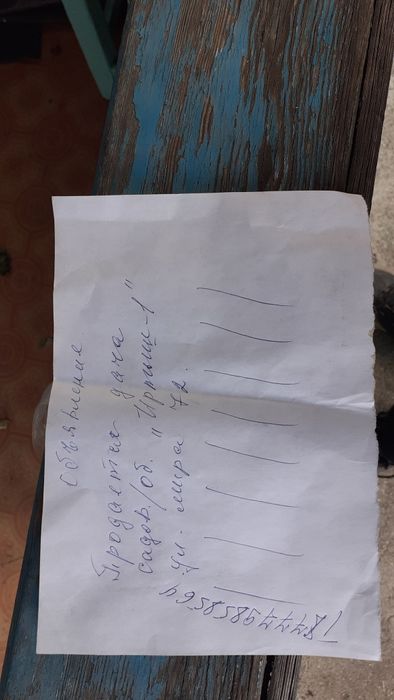 Объявление
Продается дача
садов./об. "Иртыш-1"
ул. мира 72.
87779858564